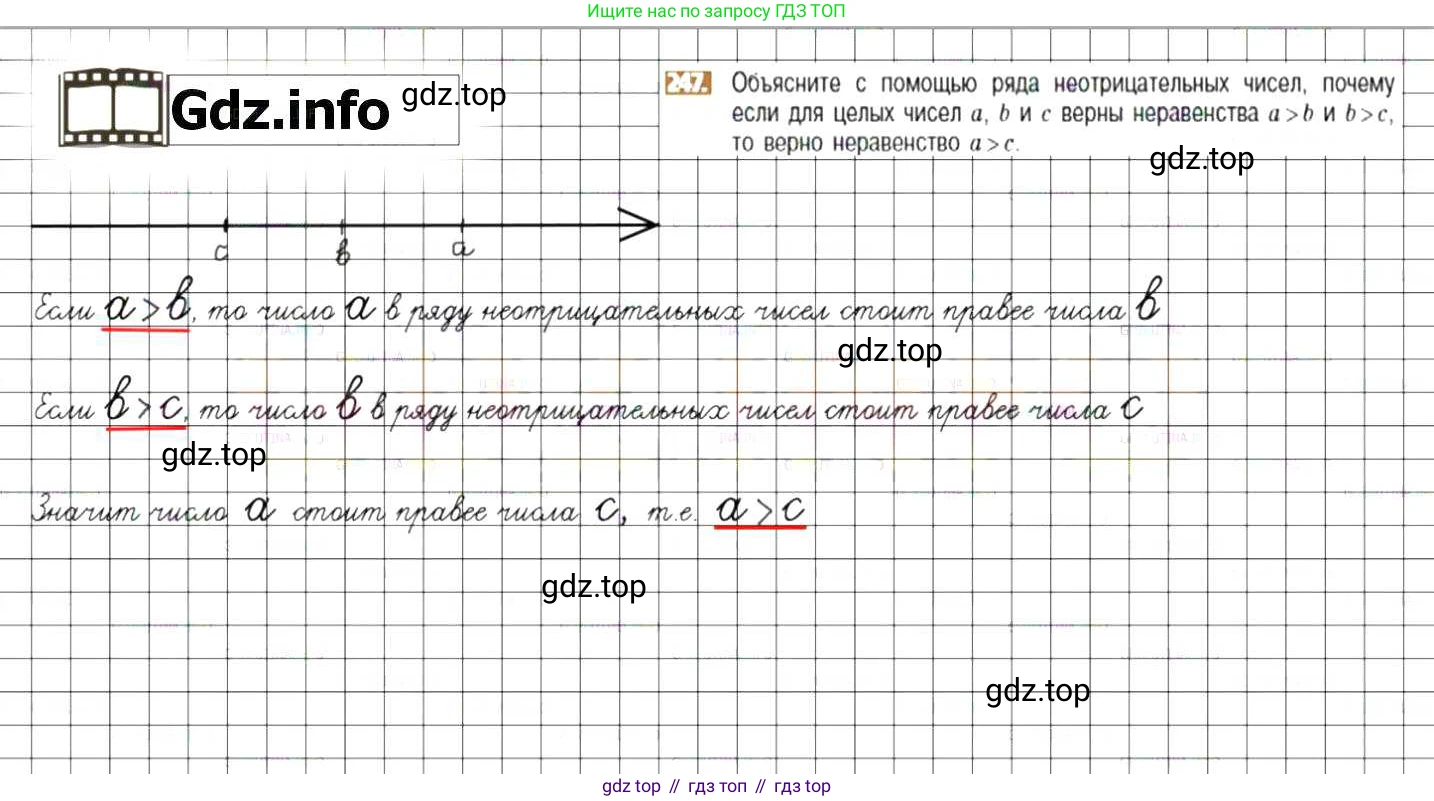 Ищите нас по запросу ГДЗ ТОП
Gdz.info gdz.top
247. Объясните с помощью ряда неотрицательных чисел, почему
если для целых чисел a, b и c верны неравенства a > b и b > c,
то верно неравенство a > c.
gdz.top
c в a
Если a > в, то число a в ряду неотрицательных чисел стоит правее числа в
gdz.top
Если в > c, то число в в ряду неотрицательных чисел стоит правее числа c
gdz.top
Значит число a стоит правее числа c, т.е. a > c
gdz.top
gdz.top
gdz top // гдз топ // гдз top